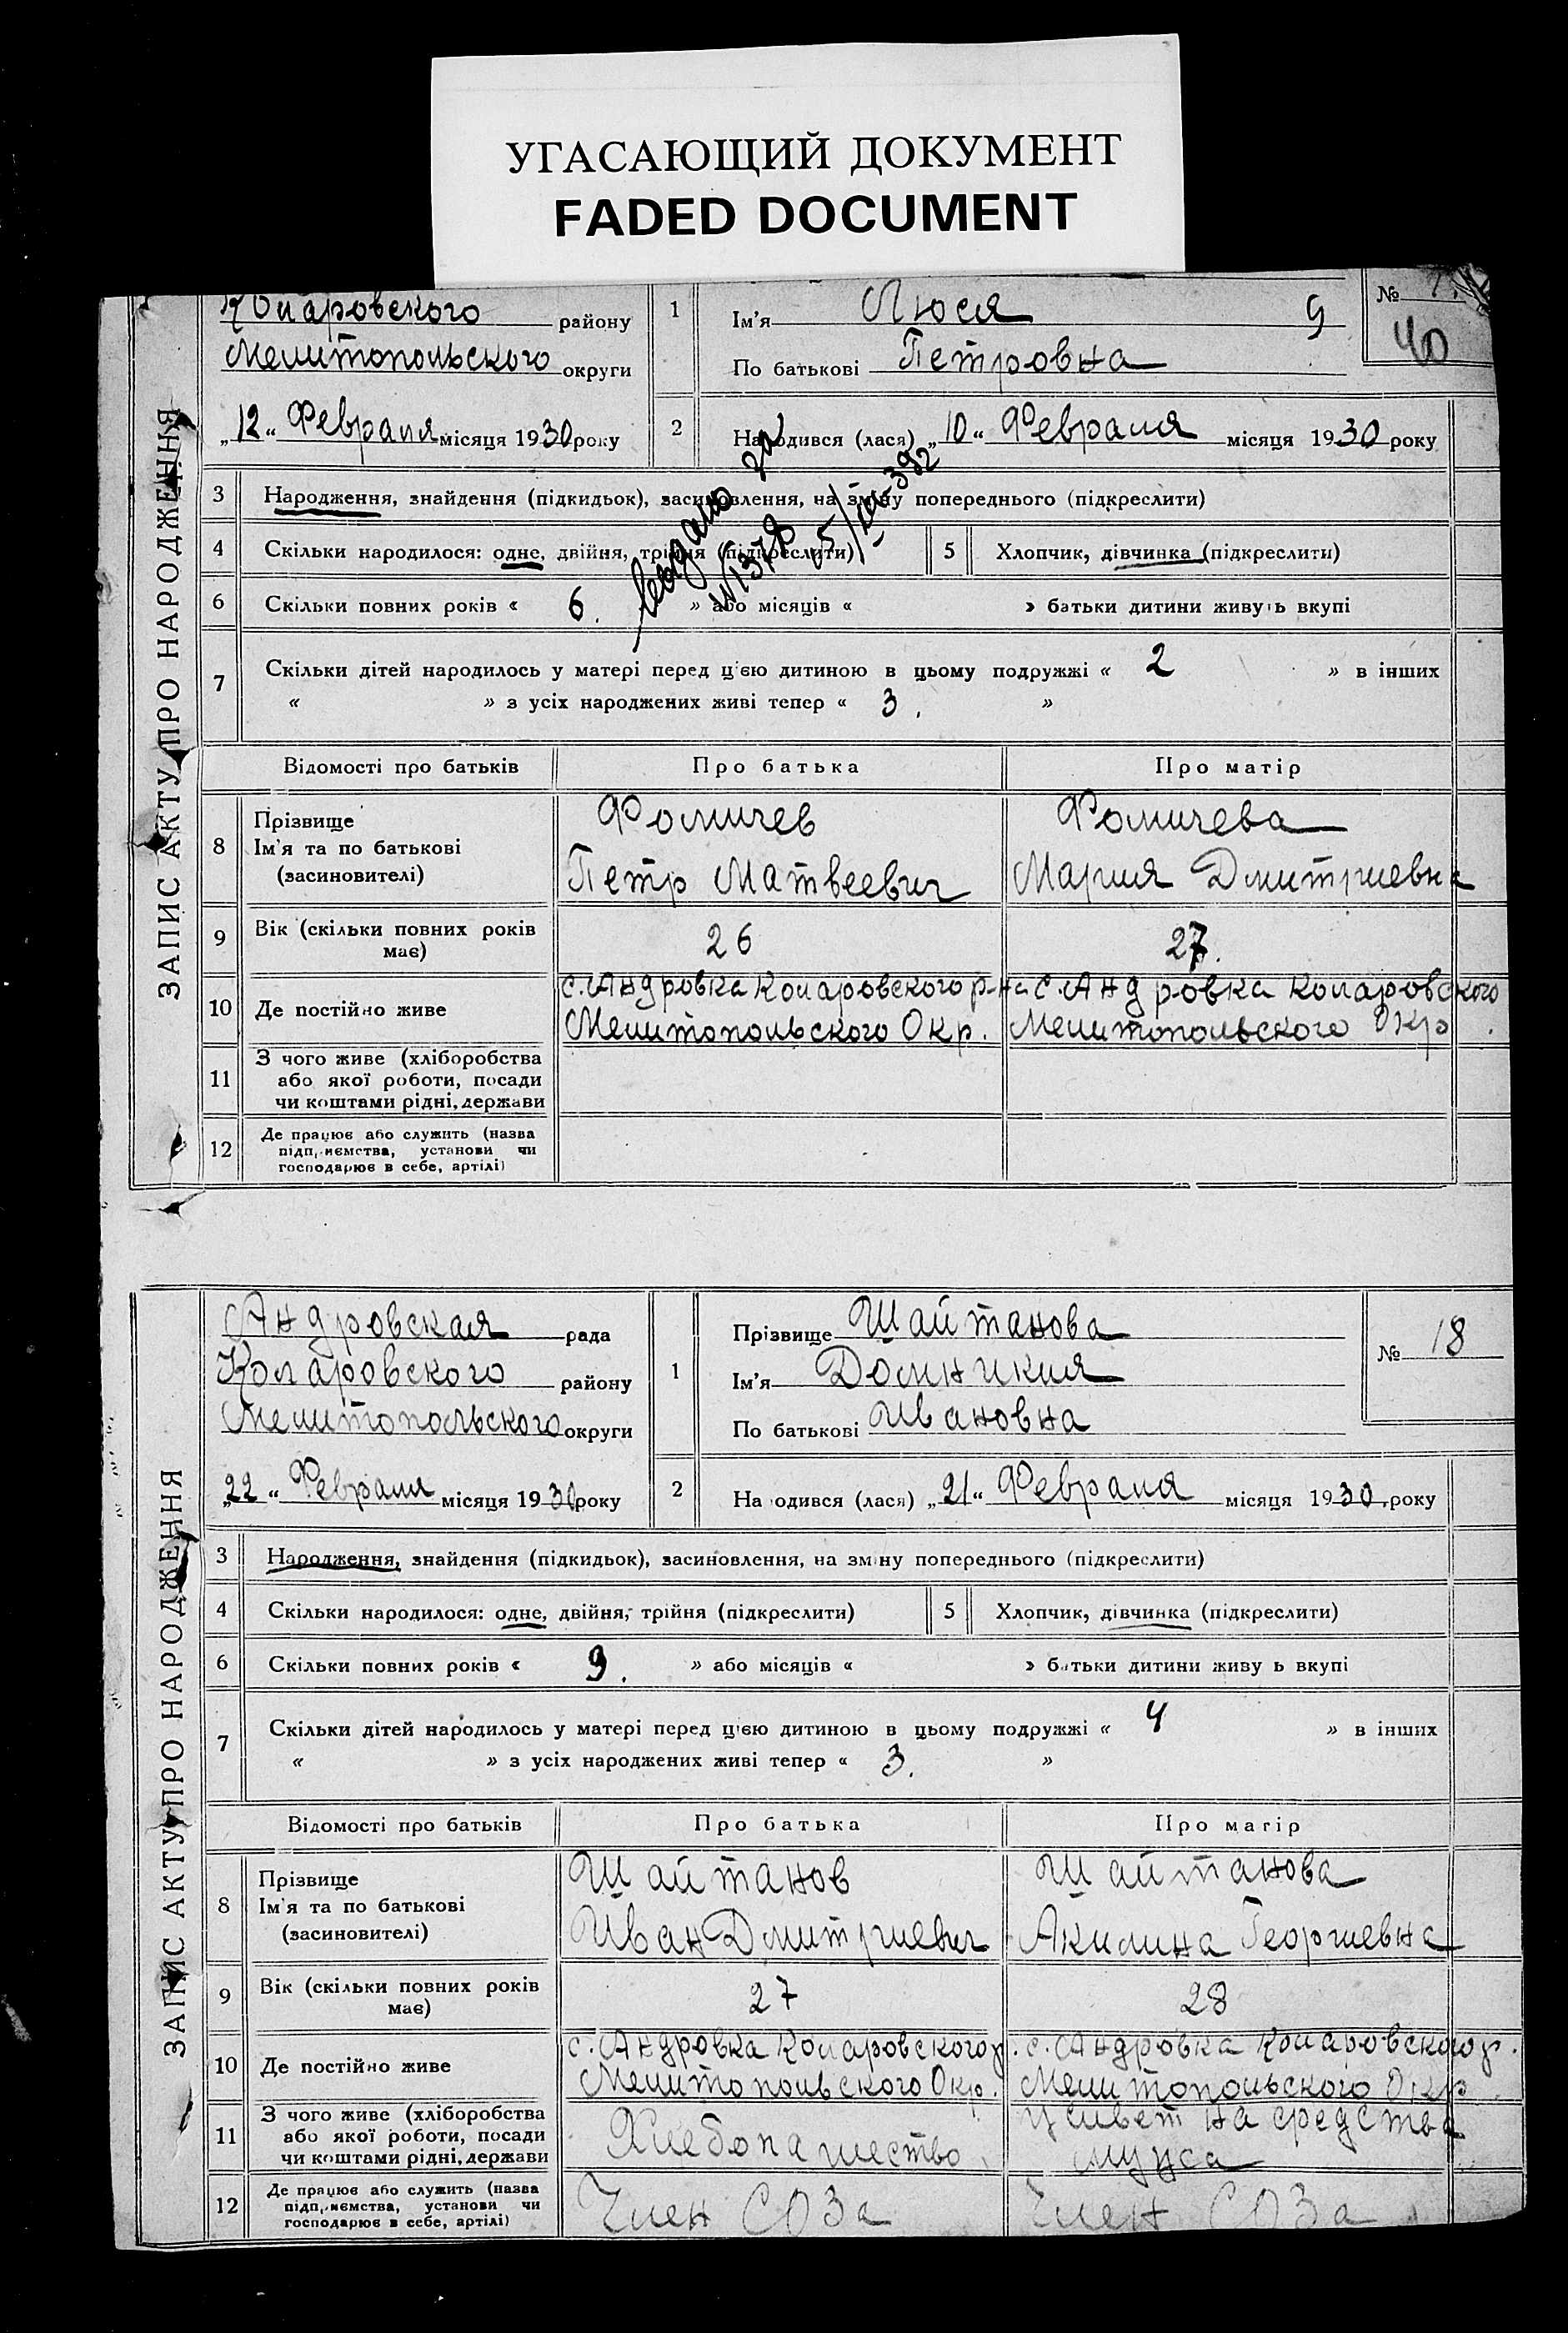 УГАСАЮЩИЙ ДОКУМЕНТ
FADED DOCUMENT
ЗАПИС АКТУ ПРО НАРОДЖЕННЯ
Коларовского району
Мелитопольского округи
„12“ Февраля місяця 1930 року
1
Ім'я Люся 9
По батькові Петровна
№
40
2
Народився (лася) „10“ Февраля місяця 1930 року
3 Народження, знайдення (підкидьок), засиновлення, на зміну попереднього (підкреслити)
4 Скільки народилося: одне, двійня, трійня (підкреслити) 5 Хлопчик, дівчинка (підкреслити)
6 Скільки повних років « 6. » або місяців « » батьки дитини живуть вкупі
7 Скільки дітей народилось у матері перед цією дитиною в цьому подружжі « 2 » в інших
« » з усіх народжених живі тепер « 3. »
Відомості про батьків Про батька Про матір
8 Прізвище Фомичев Фомичева
Ім'я та по батькові Петр Матвеевич Мария Дмитриевна
(засиновителі)
9 Вік (скільки повних років має) 26 27.
10 Де постійно живе с. Андровка Коларовского р-на с. Андровка Коларовского
Мелитопольского Окр. Мелитопольского Окр.
11 З чого живе (хліборобства
або якої роботи, посади
чи коштами рідні, держави
12 Де працює або служить (назва
підприємства, установи чи
господарює в себе, артілі)
ЗАПИС АКТУ ПРО НАРОДЖЕННЯ
Андровская рада
Коларовского району
Мелитопольского округи
„22“ Февраля місяця 1930 року
1
Прізвище Шайтанова
Ім'я Домникия
По батькові Ивановна
№ 18
2
На одився (лася) „21“ Февраля місяця 1930 року
3 Народження, знайдення (підкидьок), засиновлення, на зміну попереднього (підкреслити)
4 Скільки народилося: одне, двійня, трійня (підкреслити) 5 Хлопчик, дівчинка (підкреслити)
6 Скільки повних років « 9. » або місяців « » батьки дитини живу ь вкупі
7 Скільки дітей народилось у матері перед цією дитиною в цьому подружжі « 4 » в інших
« » з усіх народжених живі тепер « 3. »
Відомості про батьків Про батька Про матір
8 Прізвище Шайтанов Шайтанова
Ім'я та по батькові Иван Дмитриевич Акилина Георгиевна
(засиновителі)
9 Вік (скільки повних років має) 27 28
10 Де постійно живе с. Андровка Коларовского р. с. Андровка Коларовского р.
Мелитопольского Окр. Мелитопольского Окр.
11 З чого живе (хліборобства
або якої роботи, посади
чи коштами рідні, держави
Хлебопашество живет на средства
мужа
12 Де працює або служить (назва
підприємства, установи чи
господарює в себе, артілі)
Член СОЗа Член СОЗа